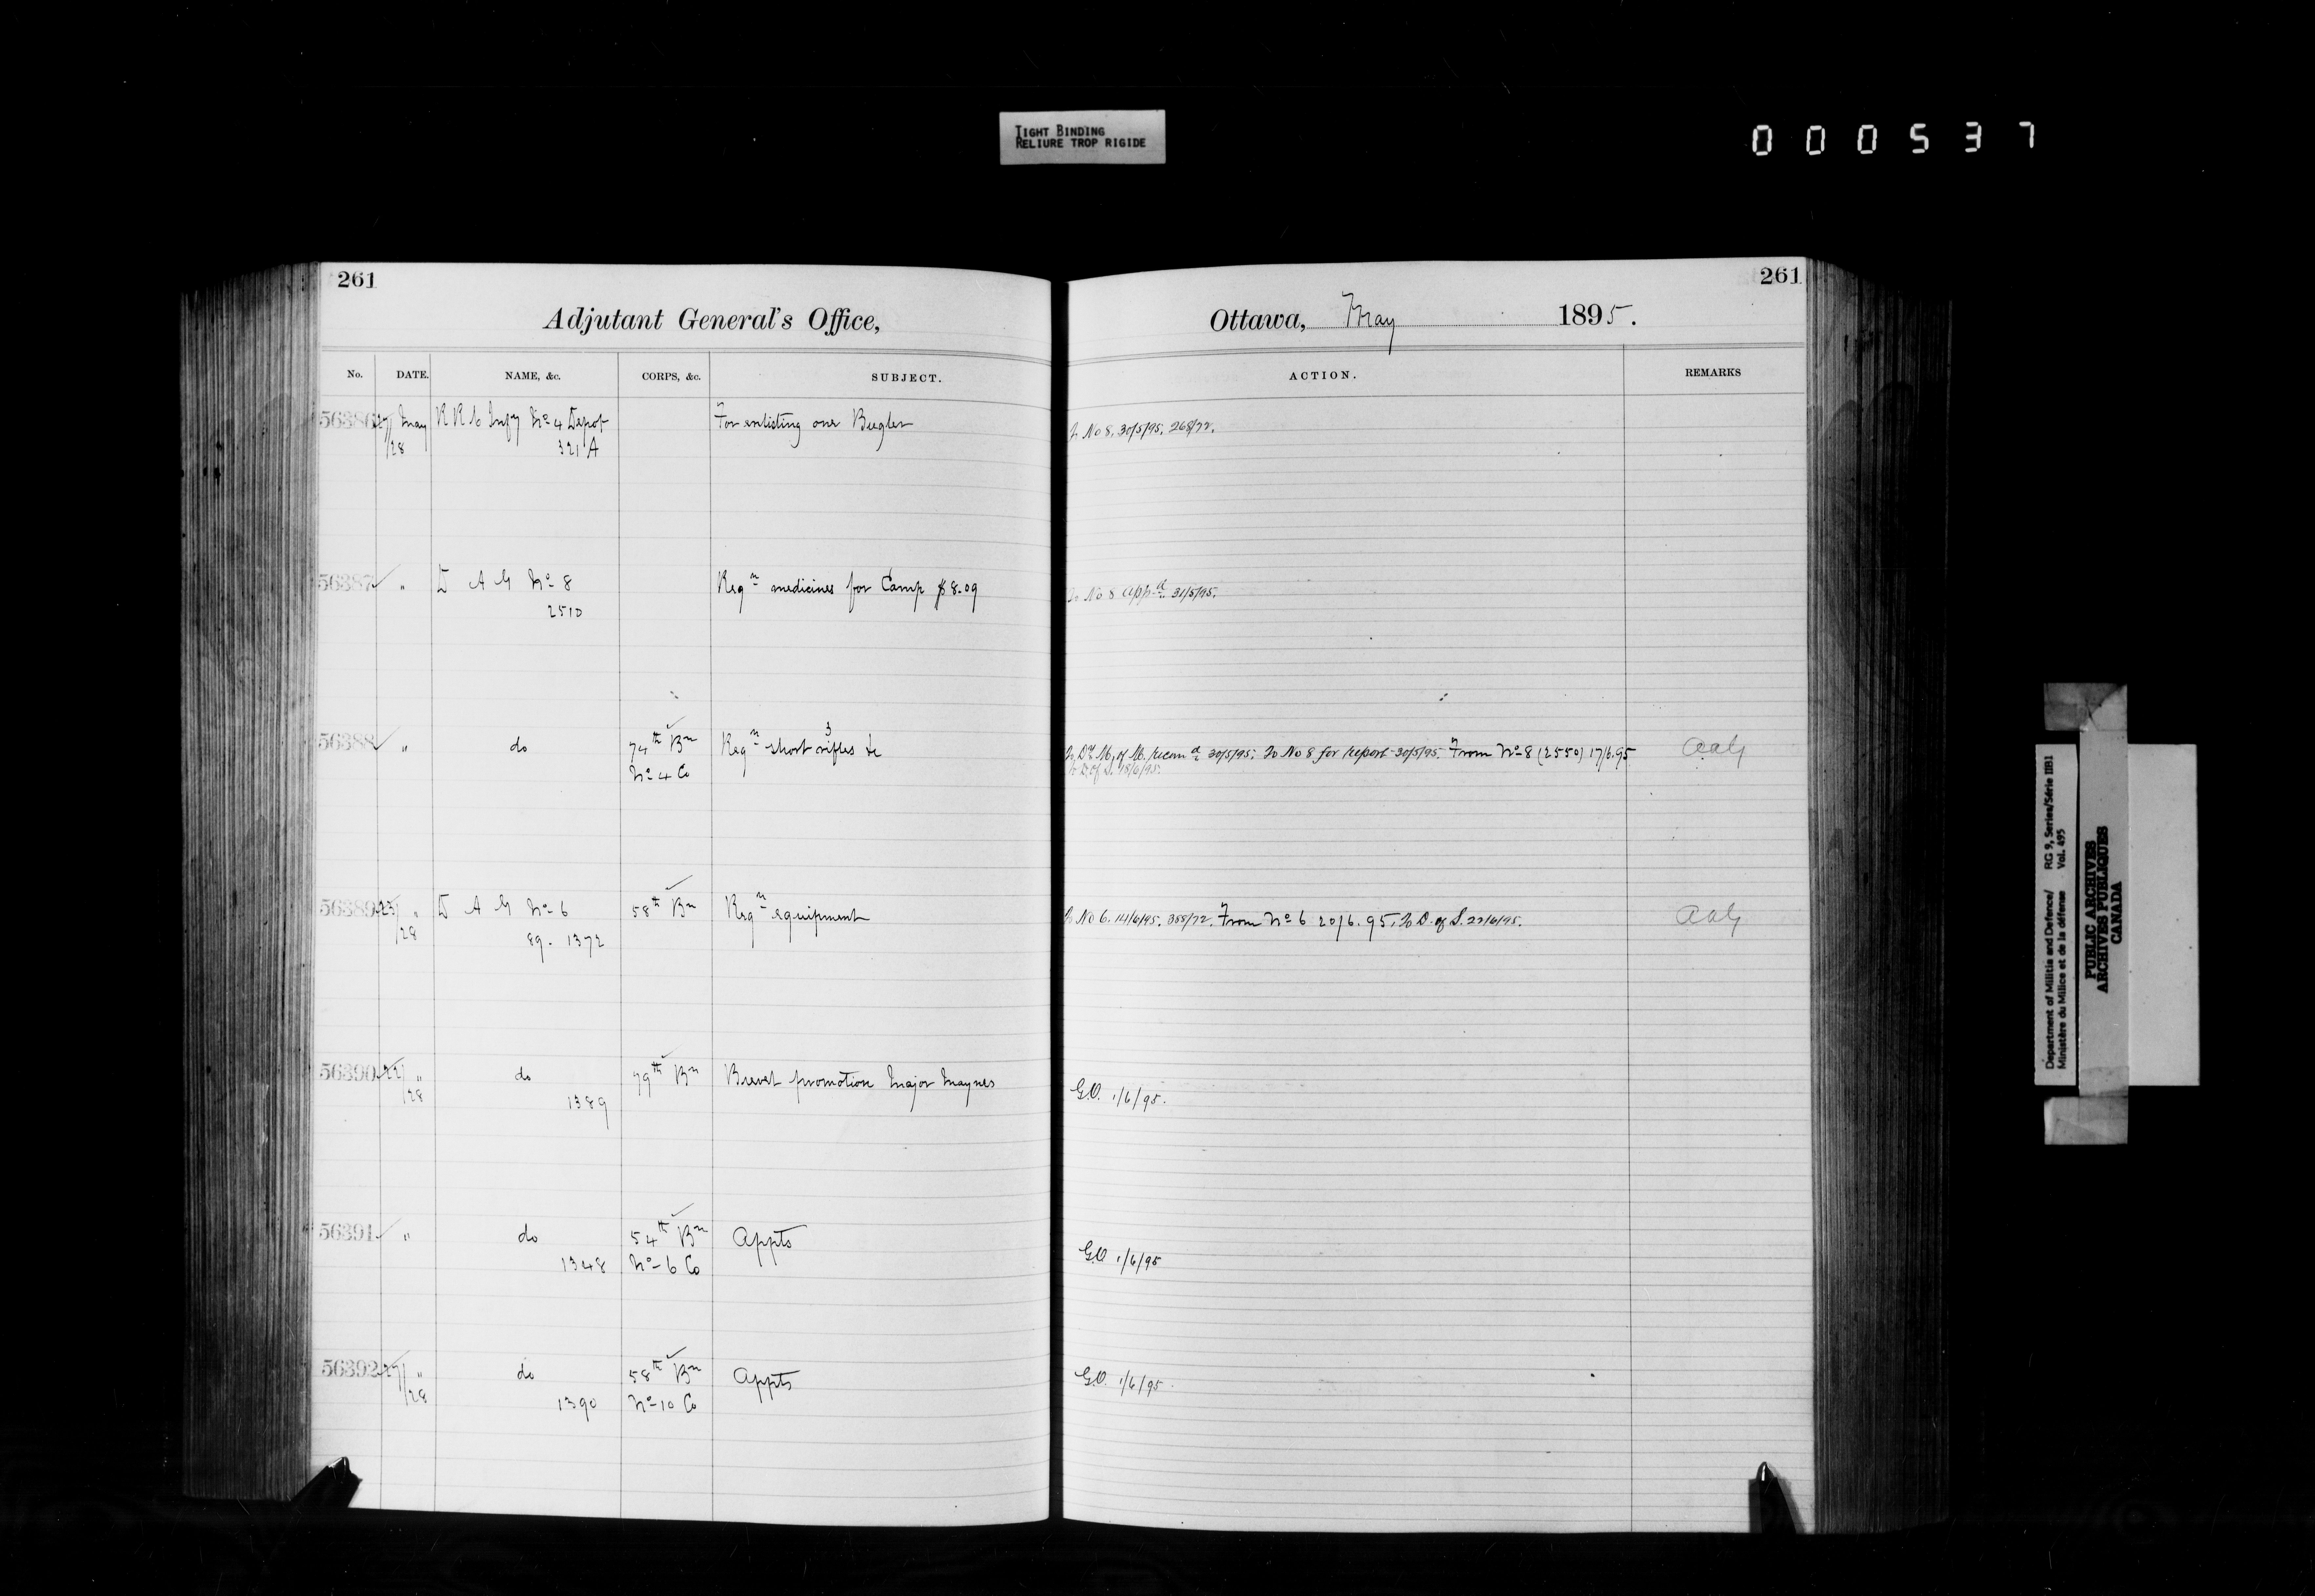 TIGHT BINDING
RELIURE TROP RIGIDE
000537
261
Adjutant General's Office,
No. DATE. NAME, &c. CORPS, &c. SUBJECT.
56386 27/28 May R R C Infy No 4 Depot For enlisting one Bugler
321 A
56387 " D A G No 8 Reqn medicines for Camp $8.09
2510
56388 " do 74th Bn Reqn 3 short rifles &c
No 4 Co
56389 23/28 " D A G No 6 58th Bn Reqn equipment
89. 1372
56390 22/28 " do 79th Bn Brevet promotion Major Maynes
1389
56391 " do 54th Bn Appts
1348 No 6 Co
56392 27/28 " do 58th Bn Appts
1390 No 10 Co
261
Ottawa, May 1895.
ACTION. REMARKS
To No 8, 30/5/95. 268/72.
To No 8 app d 31/5/95.
M. of M. recom d 30/5/95; To No 8 for report 30/5/95. From No 8 (2550) 17/6.95
To D. of S. 18/6/95.
To No 6. 14/6/95. 355/72. From No 6 20/6.95. To D. of S. 22/6/95.
G.O. 1/6/95.
G.O 1/6/95
G.O. 1/6/95.
Department of Militia and Defence/ RG 9, Series/Série IIB1
Ministère du Milice et de la défense Vol. 495
PUBLIC ARCHIVES
ARCHIVES PUBLIQUES
CANADA